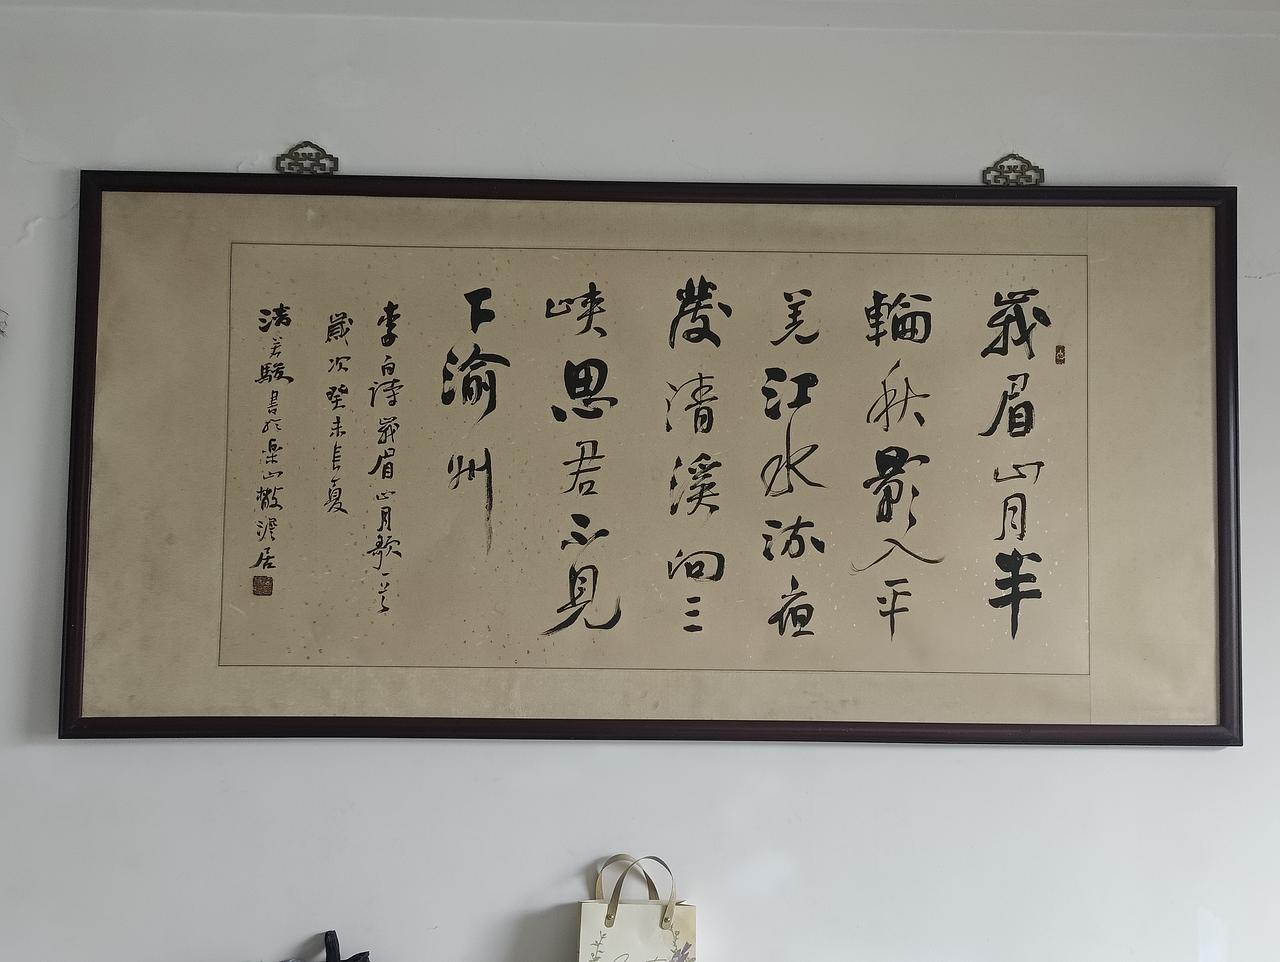 峩眉山月半
輪秋影入平
羌江水流夜
發清溪向三
峽思君不見
下渝州
李白詩峩眉山月歌一首
歲次癸未長夏
書於樂山澉澹居